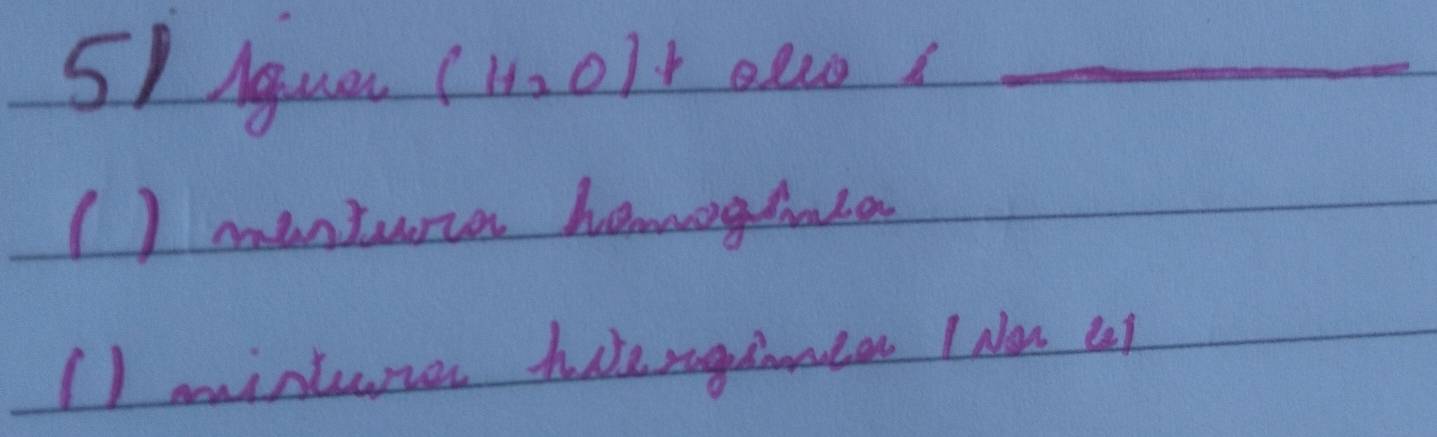 5) Água (H2O) + óleo é
( ) mistura homogênea
( ) mistura heterogênea